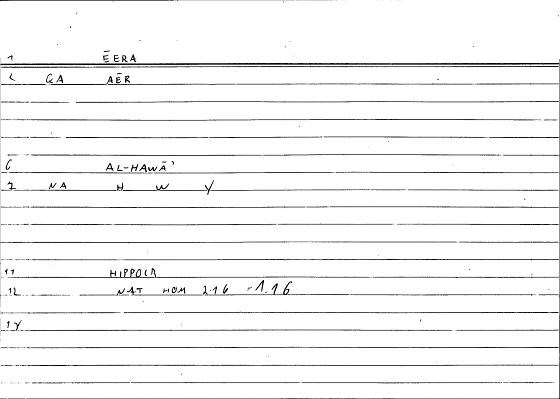 1 ĒERA
2 GA AĒR
6 AL-HAWĀʾ
7 NA H W Y
11 HIPPOCR
12 NAT HOM 2.16 -1.16
14